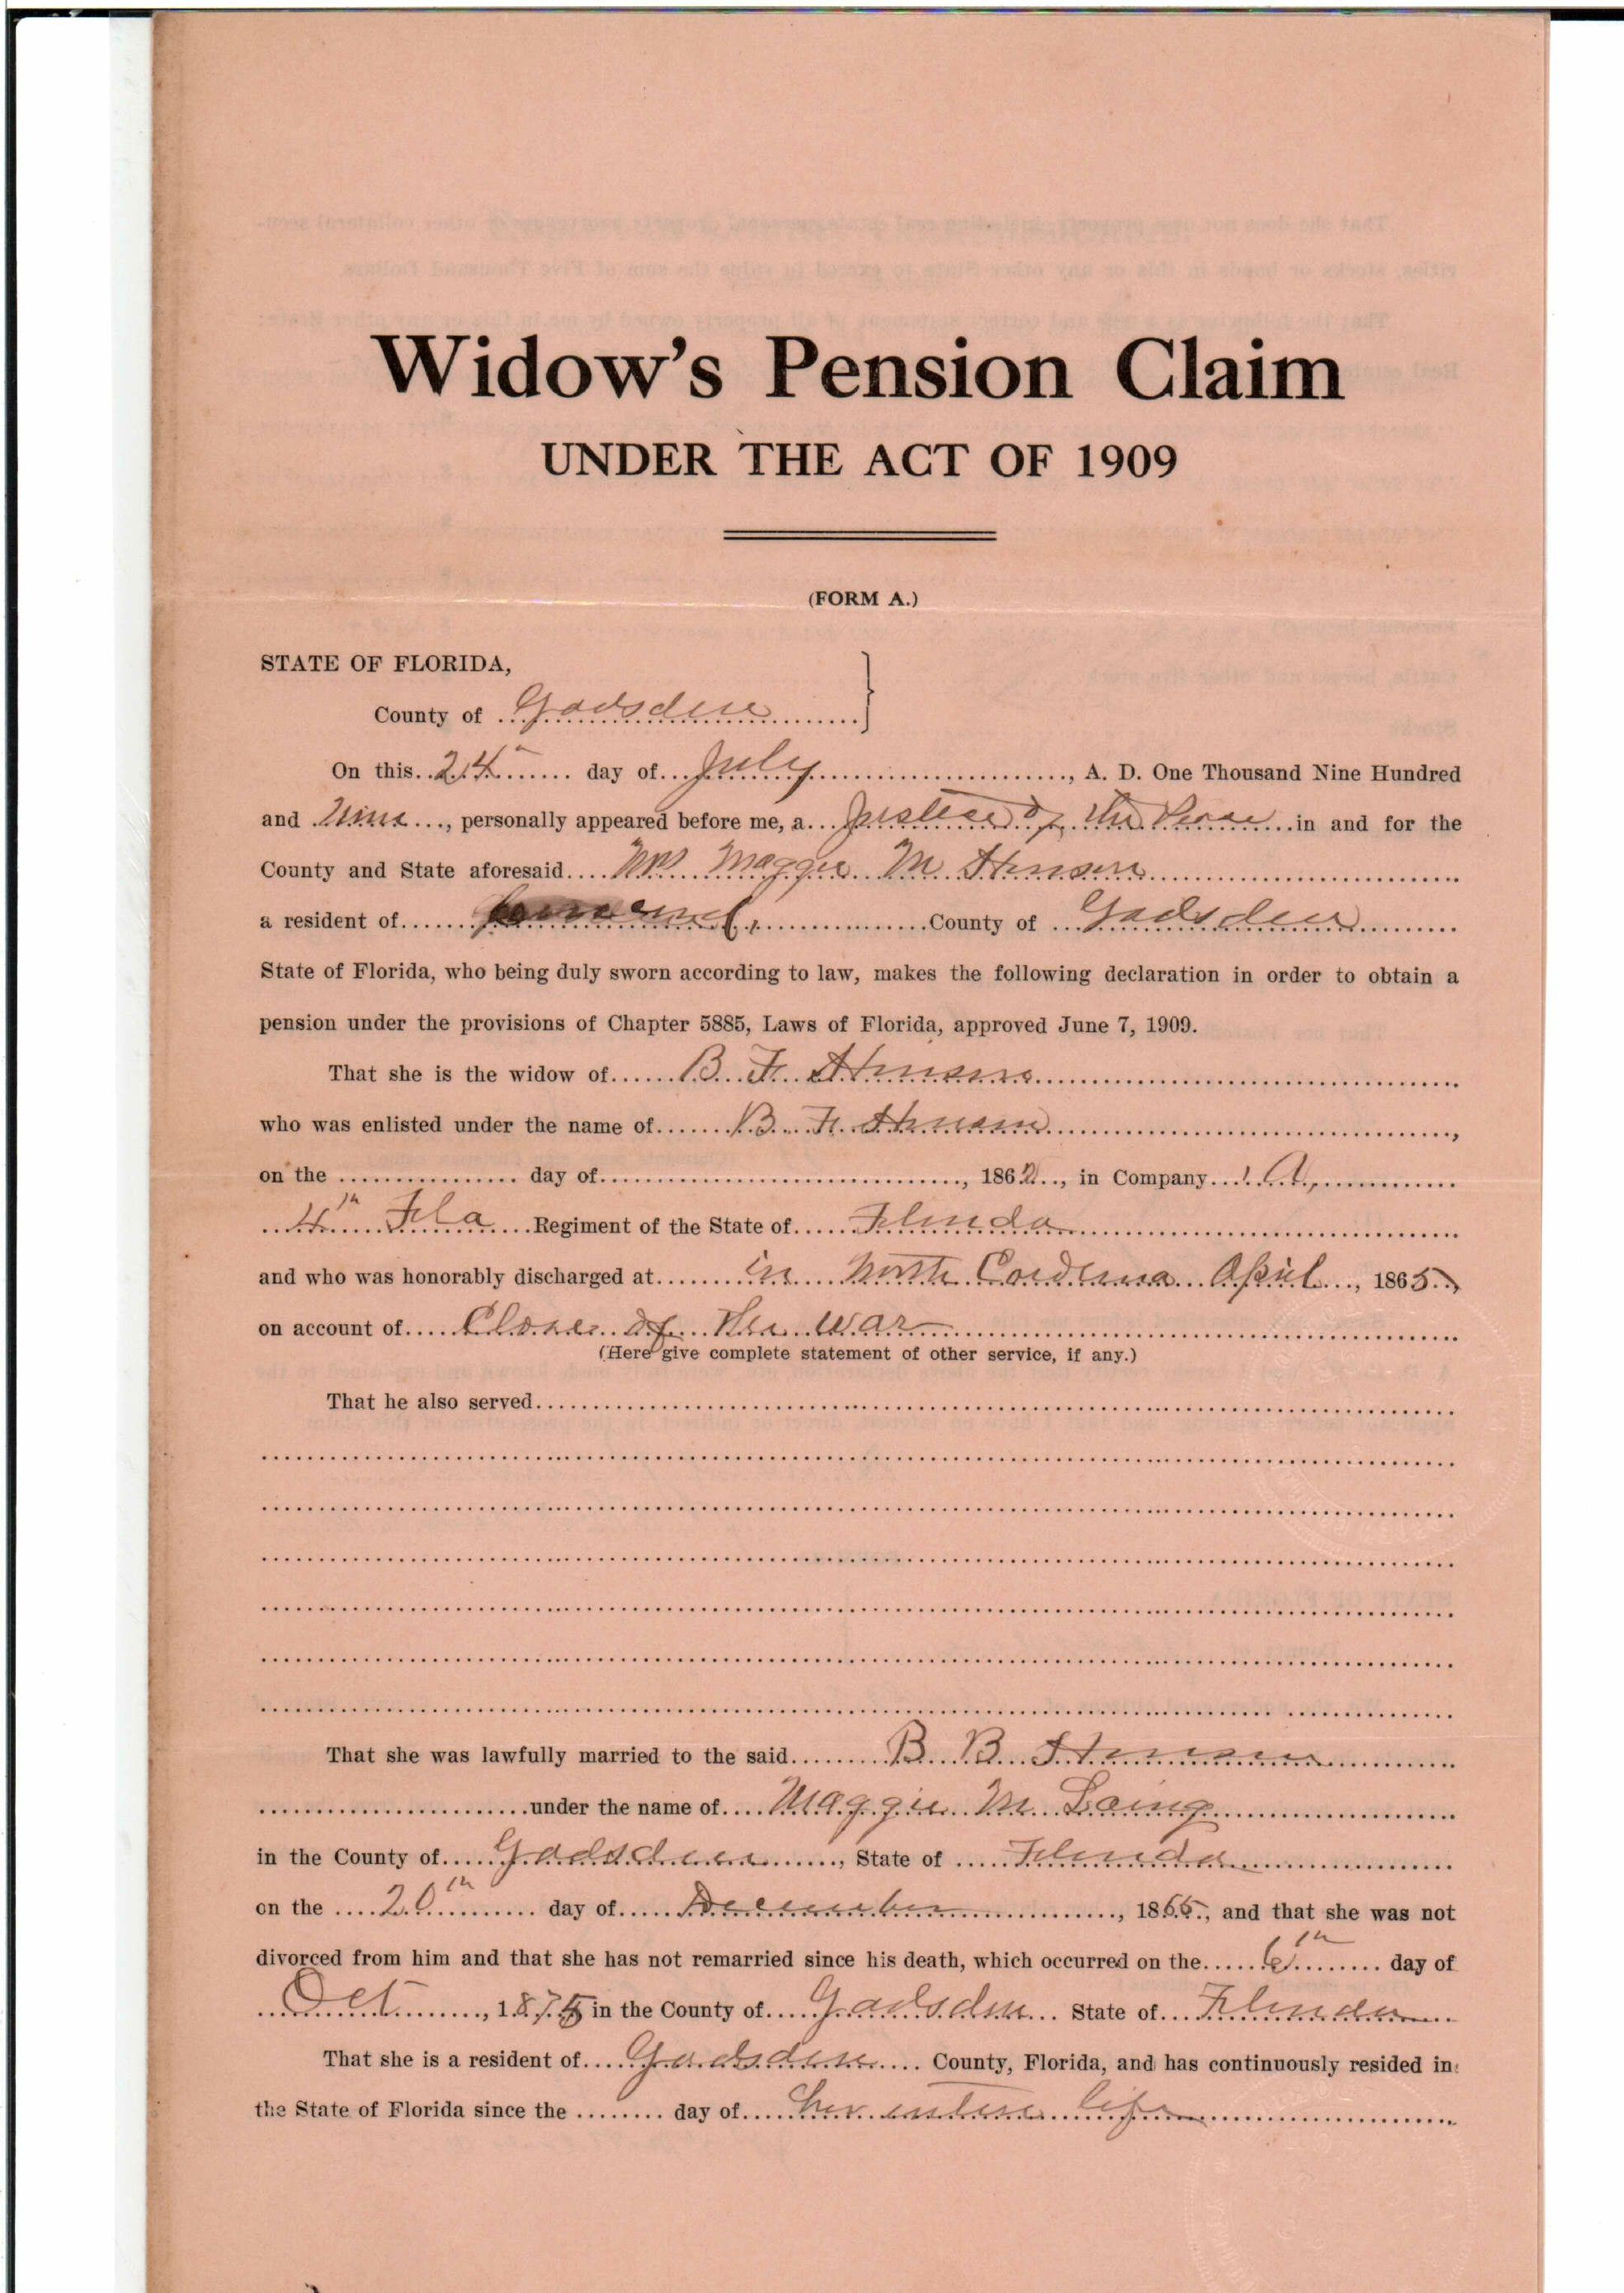 Widow's Pension Claim
UNDER THE ACT OF 1909
(FORM A.)
STATE OF FLORIDA,
County of Gadsden
On this 24 day of July, A. D. One Thousand Nine Hundred
and Nine, personally appeared before me, a Justice of the Peace in and for the
County and State aforesaid Mrs Maggie M
a resident of County of Gadsden
State of Florida, who being duly sworn according to law, makes the following declaration in order to obtain a
pension under the provisions of Chapter 5885, Laws of Florida, approved June 7, 1909.
That she is the widow of B. F.
who was enlisted under the name of B. F.
on the day of, 1862, in Company A,
4th Fla Regiment of the State of Florida
and who was honorably discharged at in North Carolina April, 1865,
on account of Close of the War
(Here give complete statement of other service, if any.)
That he also served
That she was lawfully married to the said B. B.
under the name of Maggie M Laing
in the County of Gadsden, State of Florida
on the 20th day of December, 1866, and that she was not
divorced from him and that she has not remarried since his death, which occurred on the 6th day of
Oct, 1875 in the County of Gadsden State of Florida
That she is a resident of Gadsden County, Florida, and has continuously resided in
the State of Florida since the day of her entire life